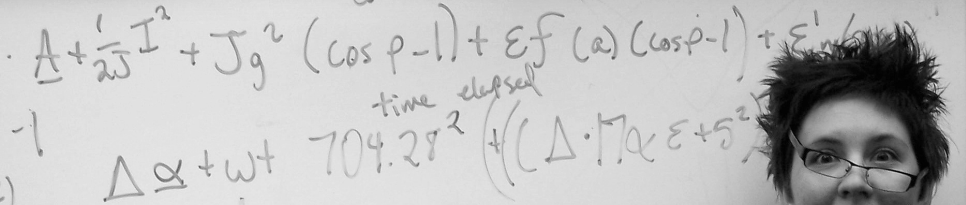 · A + 1/2J I² + Jg² (cos ρ - 1) + εf (a) (cos ρ - 1) + ε'
time elapsed
-1 Δ α + ωt 704.28² (+((Δ·Γαε+5²)
)